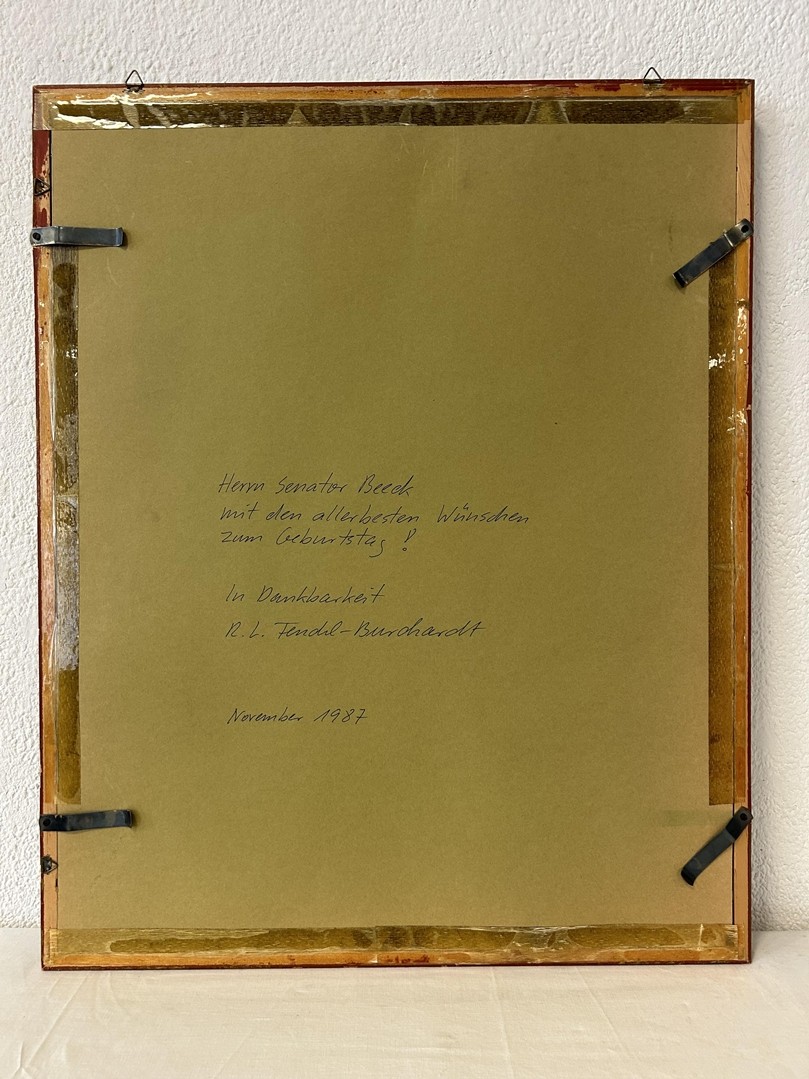 Herrn Senator Beeck
mit den allerbesten Wünschen
zum Geburtstag !
In Dankbarkeit
R. L. Fendel-Burchardt
November 1987